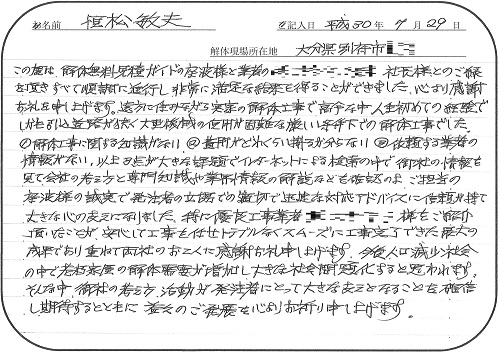 お名前 恒松敏夫 ご記入日 平成30年7月29日
解体現場所在地 大分県別府市
この度は、解体無料見積ガイドの 様と業者の 社長様とのご縁
を頂きすべて順調に進行し非常に満足な結果を得ることができました。心より感謝
お礼を申し上げます。遠方に住みながら実家の解体工事で高齢な中人生初めての経験で
しかも引込道路が狭く大型機械の使用が困難な厳しい条件下での解体工事でした。
①解体工事に関する知識がない ②費用がどれくらい掛るか分らない ③依頼する業者の
情報がない。以上の3点が大きな課題でインターネットによる検索の中で御社の情報を
見て会社の考え方と専門知識や業界情報の解説なども確認のよ ご担当の
様の誠実で発注者の立場での親切で迅速な対応アドバイスに信頼が持て
大きな心の支えになりました。特に優良工事業者 様をご紹介
頂いたことが安心して工事を任せトラブルなくスムーズに工事完了できた最大の
成果であり重ねて両社のお二人に感謝お礼申し上げます。今後人口減少社会
の中で老朽家屋の解体需要が増加し大きな社会問題化すると思われます。
そんな中、御社の考え方、活動が発注者にとって大きな支えとなることを確信
し期待するとともに 益々のご発展を心よりお祈り申し上げます。